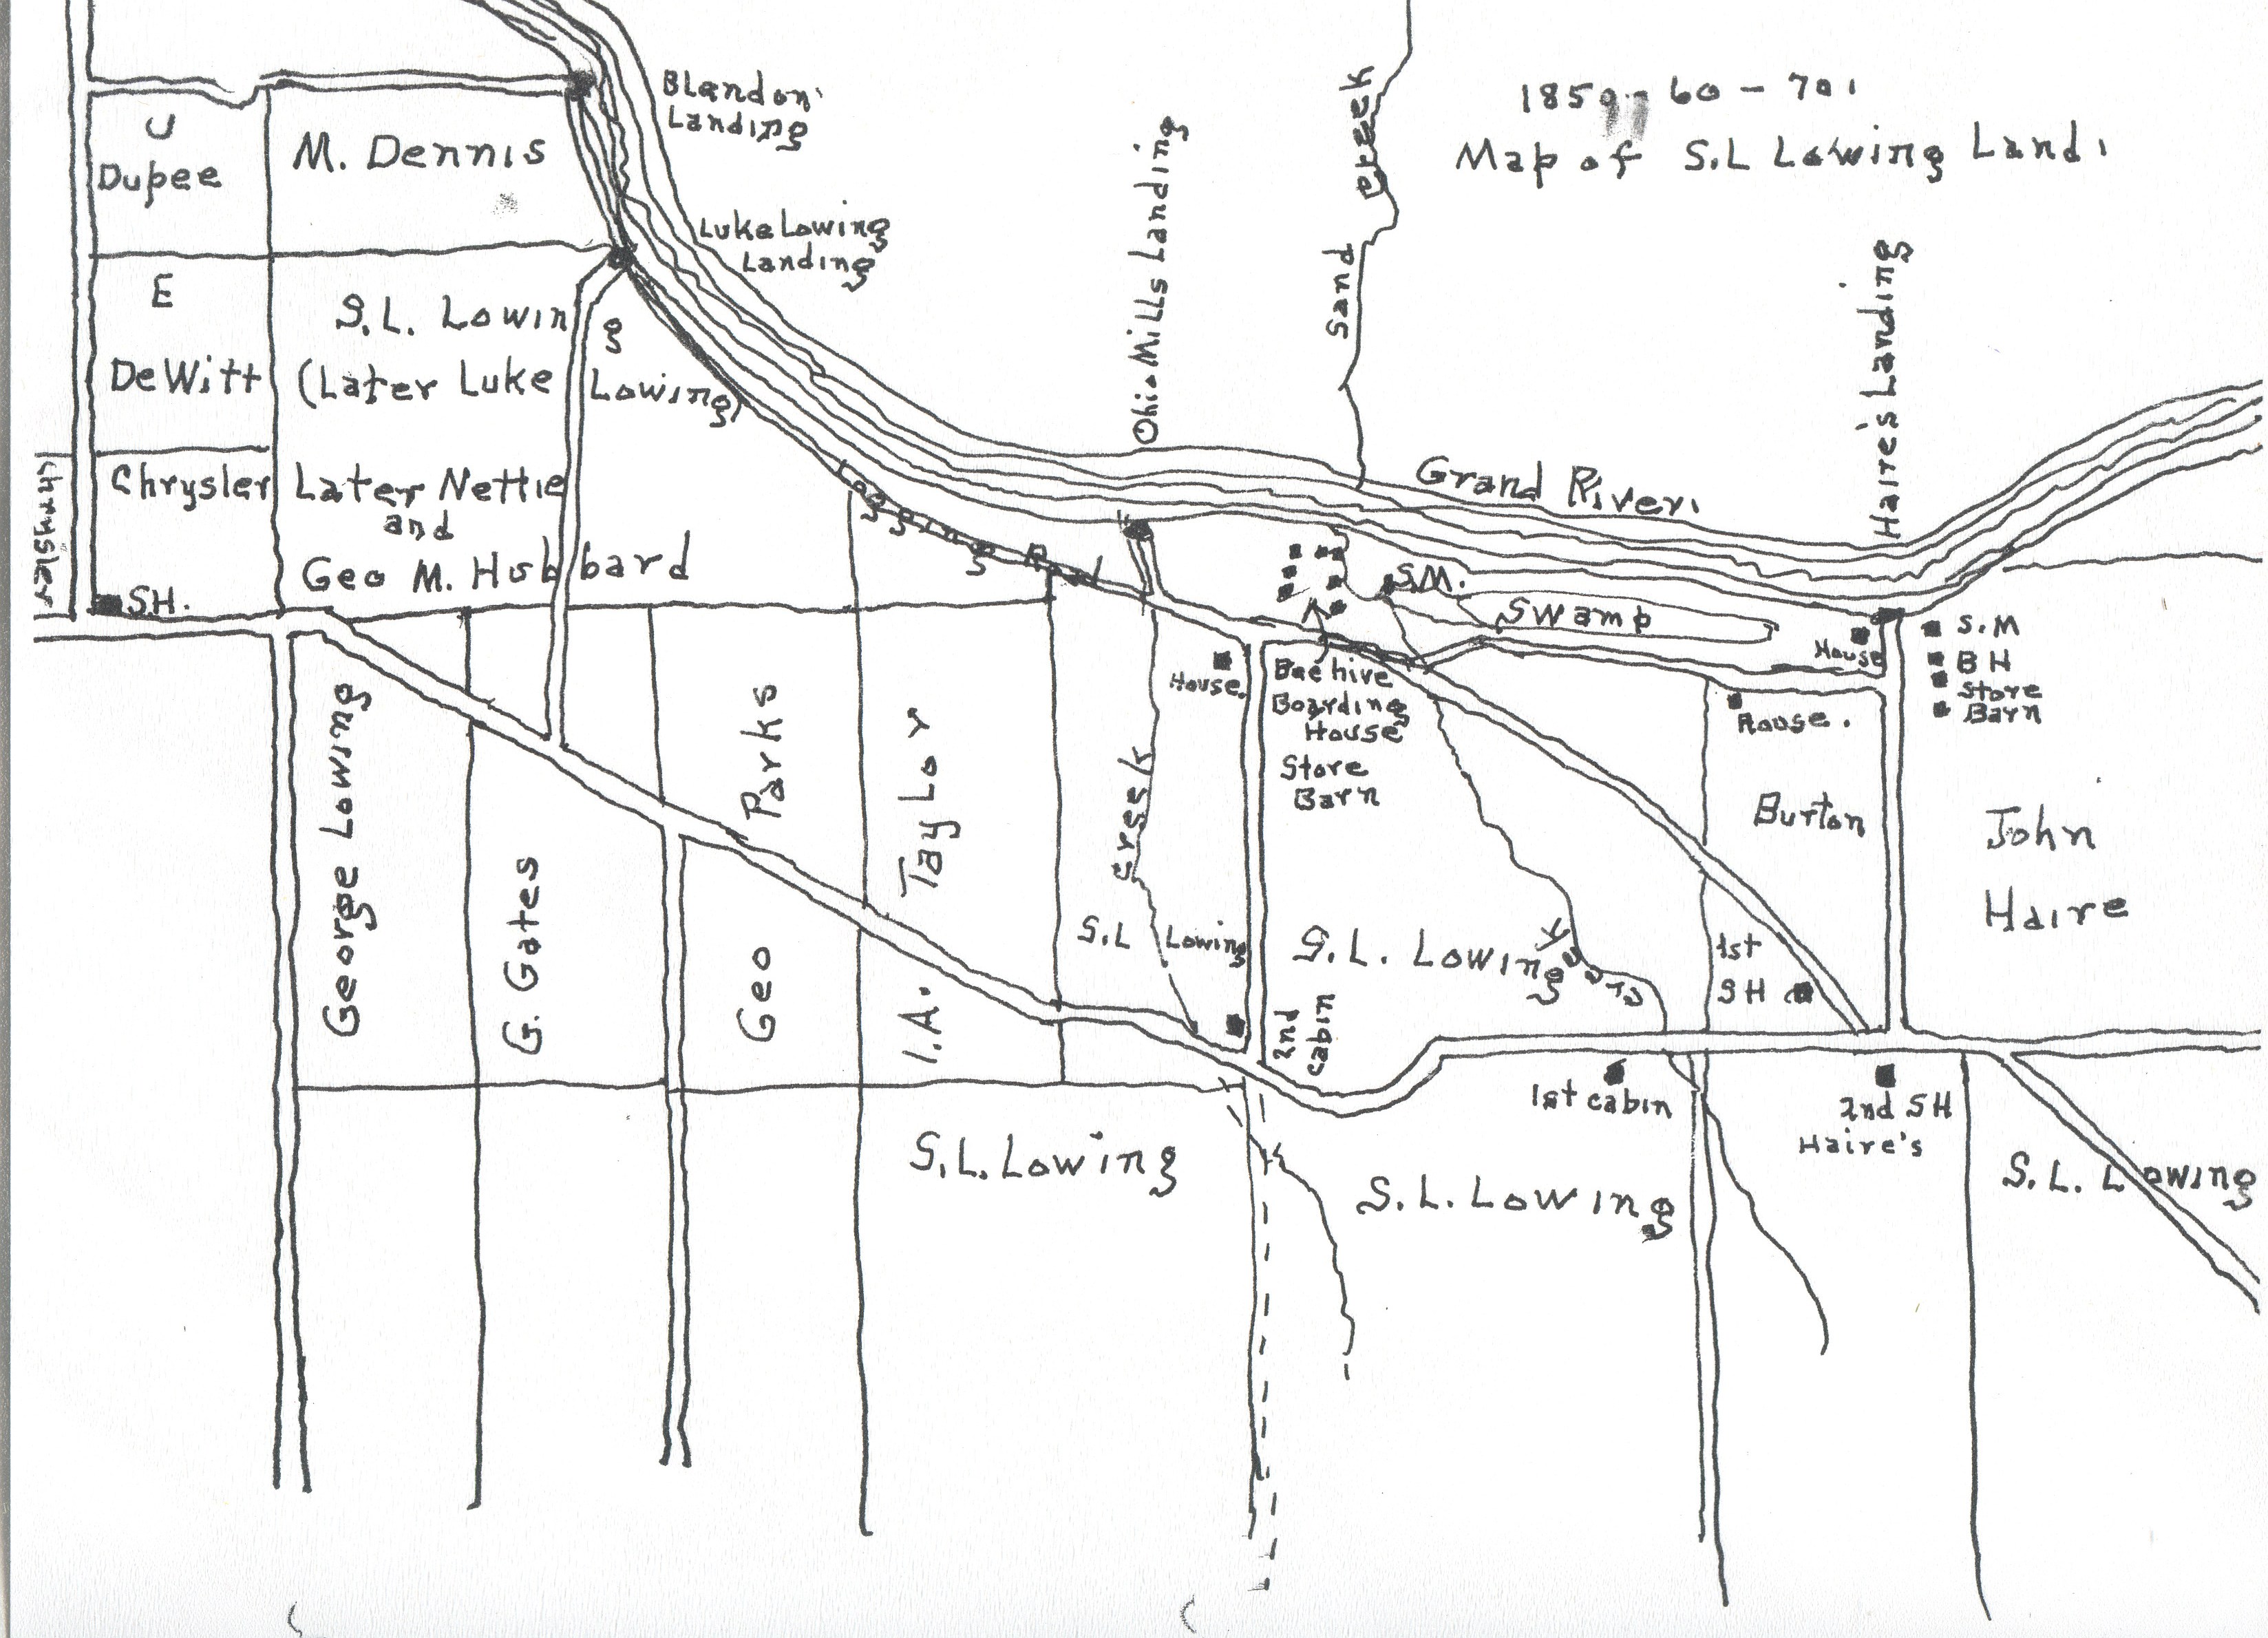 1850-60-70.
Map of S.L Lowing Land.
Blandon
Landing
Luke Lowing
Landing
Ohio Mills Landing
Sand Creek
Haire's Landing
Grand River.
U
Dupee
M. Dennis
E
DeWitt
S.L. Lowing
(Later Luke Lowing)
Chrysler
Chrysler
Later Nettie
and
Geo M. Hubbard
SH.
Logging Road
S.M.
Swamp
House
S.M
BH
Store
Barn
House.
Bee hive
Boarding
House
Store
Barn
House.
George Lowing
G. Gates
Geo Parks
I.A. Taylor
Creek
S.L Lowing
S.L. Lowing
Burton
John
Haire
1st
SH
2nd
cabin
1st cabin
2nd SH
Haire's
S.L. Lowing
S.L. Lowing
S.L. Lowing